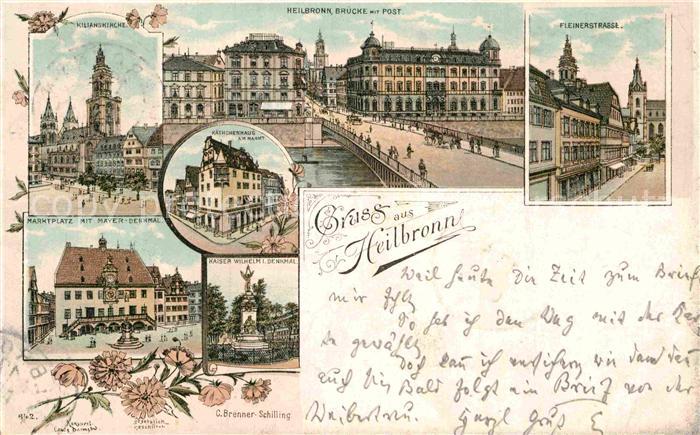 KILIANSKIRCHE.
HEILBRONN, BRÜCKE MIT POST.
FLEINERSTRASSE.
KÄTHCHENHAUS
AM MARKT
MARKTPLATZ MIT MAYER-DENKMAL
KAISER WILHELM I. DENKMAL
Gruss aus
Heilbronn
Weil heute die Zeit zum Brief
mir fehlt
So hab ich den Weg mit der Kar
te gewählt
Doch kann ich versichern
auch bis Bald folgt ein Brief von der
Weibertreu. Herzl Gruß
C. Brenner-Schilling
gesetzlich
geschützt